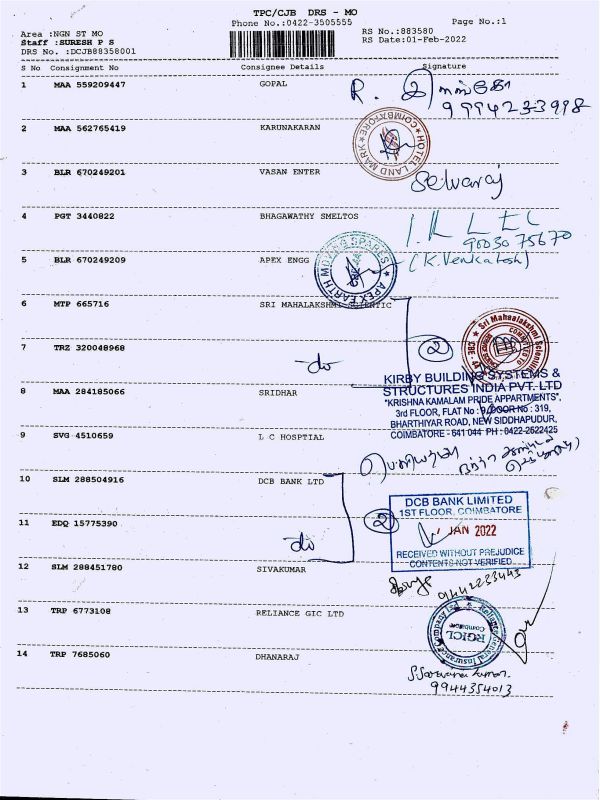 TPC/CJB DRS - MO
Phone No.:0422-3505555
Page No.:1
Area :NGN ST MO
Staff :SURESH P S
DRS No. :DCJB88358001
RS No.:883580
RS Date:01-Feb-2022
S No Consignment No Consignee Details Signature
1 MAA 559209447 GOPAL
R.
9994233998
2 MAA 562765419 KARUNAKARAN
HOTEL LAND MARK COIMBATORE
3 BLR 670249201 VASAN ENTER
Selvaraj
4 PGT 3440822 BHAGAWATHY SMELTOS
90030 75670
5 BLR 670249209 APEX ENGG
(K. Venkatesh)
APEX EARTH MOVING SPARES
6 MTP 665716 SRI MAHALAKSHMI SCIENTIC
Sri Mahaalakshmi Scientific
7 TRZ 320048968
do
2
8 MAA 284185066 SRIDHAR
KIRBY BUILDING SYSTEMS &
STRUCTURES INDIA PVT. LTD
"KRISHNA KAMALAM PRIDE APPARTMENTS",
3rd FLOOR, FLAT No : 9, DOOR No : 319,
BHARTHIYAR ROAD, NEW SIDDHAPUDUR,
COIMBATORE - 641 044 PH : 0422-2522425
9 SVG 4510659 L C HOSPTIAL
10 SLM 288504916 DCB BANK LTD
DCB BANK LIMITED
1ST FLOOR, COIMBATORE
JAN 2022
RECEIVED WITHOUT PREJUDICE
CONTENTS NOT VERIFIED
11 EDQ 15775390
do
2
12 SLM 288451780 SIVAKUMAR
9442233443
13 TRP 6773108 RELIANCE GIC LTD
Reliance General Insurance Company Ltd
RGICL
Coimbatore
14 TRP 7685060 DHANARAJ
S. Saravana kumar.
9944354013